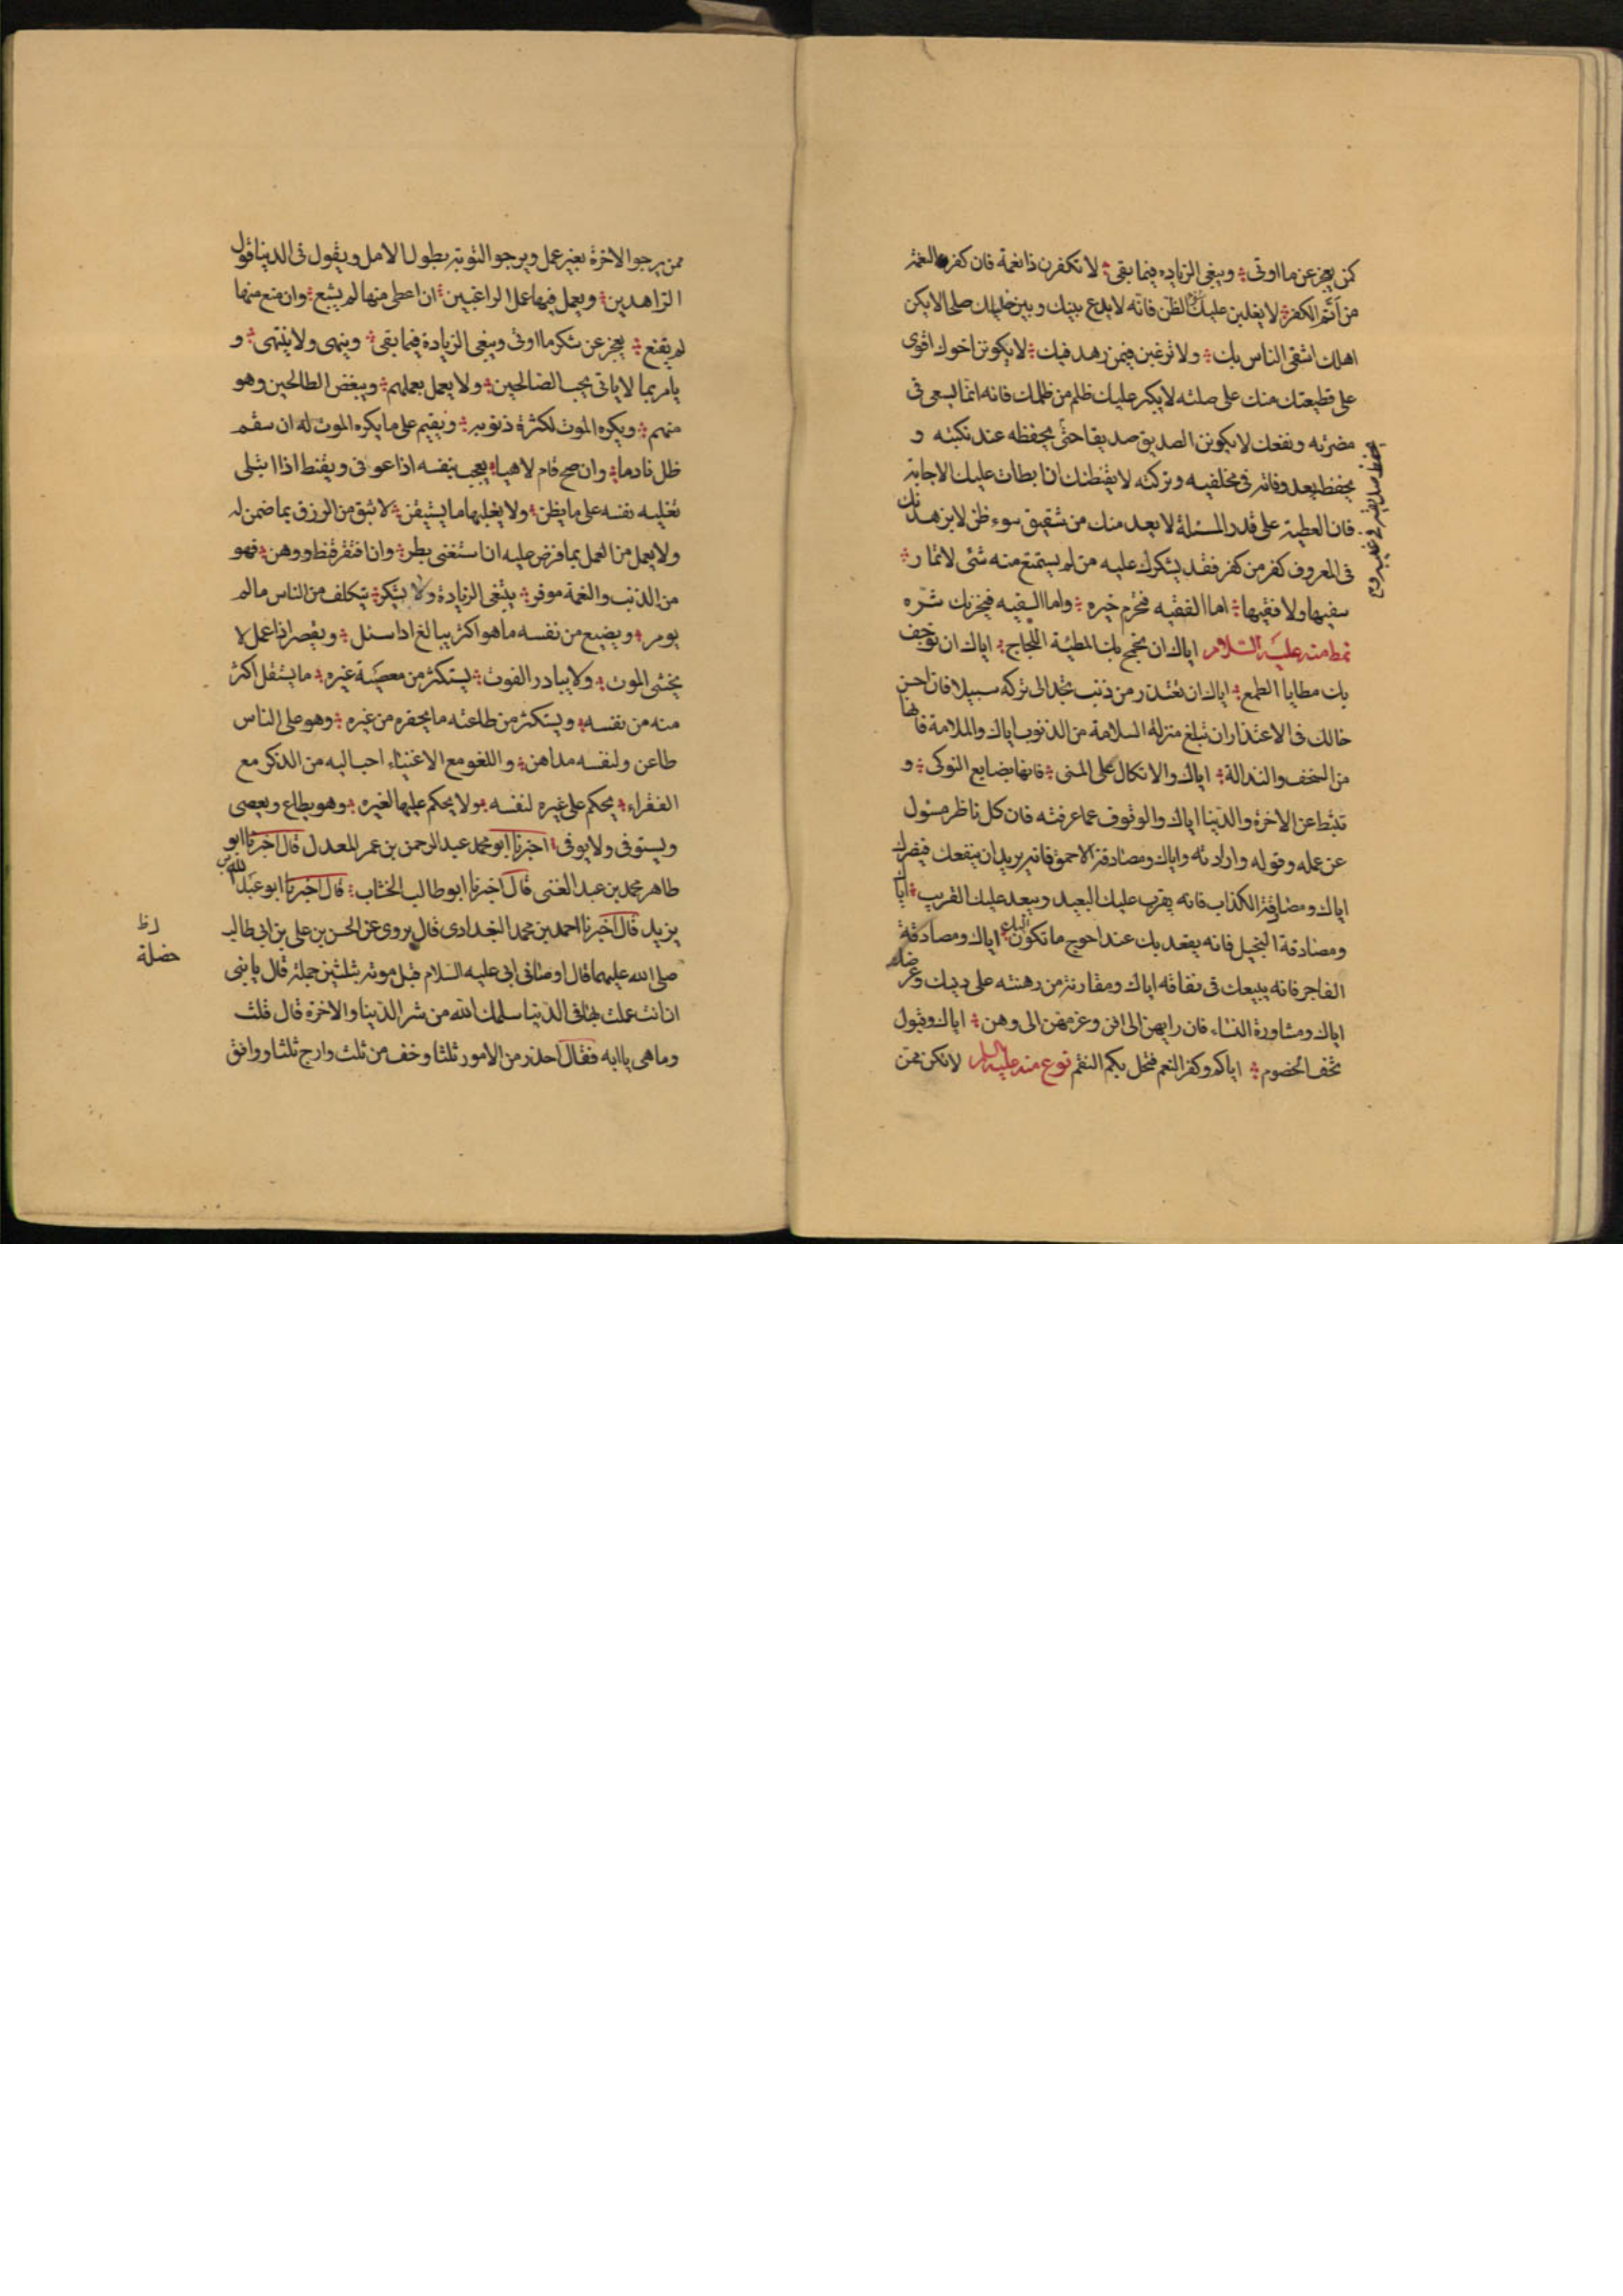 كمن يعجز عن ما اوتى ؞ ويبغى الزياده فيما بقى ؞ لا تكفرن ذا نعمة فان كفر النعمة
من ألأم الكفر ؞ لا يغلبن عليك سوء الظن فانه لا يدع بينك وبين خليلك صلحا لا يكن
اهلك اشقى الناس بك ؞ ولا ترغبن فيمن زهد فيك ؞ لا يكونن اخوك اقوى
على قطيعتك منك على صلته لا يكبر عليك ظلم من ظلمك فانه انما يسعى فى
مضرته ونفعك لا يكونن الصديق صديقا حتى يحفظه عند نكبته و
يحفظ بعد وفاته فى مخلفيه وتركته لا يقنطنك ان ابطات عليك الاجابة
فان العطية على قدر المسئلة لا يعد منك من شقيق سوء ظن لا يزهدنك
فى المعروف كفر من كفر فقد يشكرك عليه من لم يستمتع منه شئ لا تمار ؞
سفيها ولا فقيها ؞ اما الفقيه فتحرم خيره ؞ واما السفيه فيحزنك شره
نمط منه عليه السلام اياك ان تجمح بك المطية اللجاج ؞ اياك ان توجف
بك مطايا الطمع ؞ اياك ان تعتذر من ذنب تجد الى تركه سبيلا فان احسن
حالك فى الاعتذار ان تبلغ منزلة السلامة من الذنوب اياك والملامة فانها
من السخف والنذالة ؞ اياك والاتكال على المنى ؞ فانها بضايع النوكى ؞ و
تثبط عن الاخرة والدنيا اياك والوقوف عما عرفته فان كل ناظر مسئول
عن عمله وقوله وارادته واياك ومصادقة الاحمق فانه يريد ان ينفعك فيضرك
اياك ومصادقة الكذاب فانه يقرب عليك البعيد ويبعد عليك القريب ؞ ايا
ومصادقة البخيل فانه يقعد بك عند احوج ما تكون اليه ؞ اياك ومصادقة
الفاجر فانه يبيعك فى نفاقه اياك ومقارنة من رهنته على دينك وعرضك
اياك ومشاورة النساء فان رايهن الى افن وعزمهن الى وهن ؞ اياك وقبول
تحف الخصوم ؞ اياكم وكفر النعم فتحل بكم النقم نوع منه عليه السلم لا تكن ممن
ممن يرجو الاخرة بغير عمل ويرجو التوبة بطول الامل ويقول فى الدنيا قول
الزاهدين ؞ ويعمل فيها عمل الراغبين ؞ ان اعطى منها لم يشبع ؞ وان منع منها
لم يقنع ؞ يعجز عن شكر ما اوتى ويبغى الزيادة فيما بقى ؞ وينهى ولا ينتهى ؞ و
يامر بما لا ياتى يحب الصالحين ؞ ولا يعمل بعملهم ؞ ويبغض الطالحين وهو
منهم ؞ ويكره الموت لكثرة ذنوبه ؞ ويقيم على ما يكره الموت له ان سقم
ظل نادما ؞ وان صح قام لاهيا ؞ يعجب بنفسه اذا عوفى ويقنط اذا ابتلى
تغلبه نفسه على ما يظن ؞ ولا يغلبها ما يستيقن ؞ لا يثق من الرزق بما ضمن له
ولا يعمل من العمل بما فرض عليه ان استغنى بطر ؞ وان افتقر قنط ووهن ؞ فهو
من الذنب والنعمة موفر ؞ يبتغى الزيادة ولا يشكر ؞ يتكلف من الناس ما لم
يومر ؞ ويضيع من نفسه ما هو اكثر يبالغ اذا سئل ؞ ويقصر اذا عمل لا
يخشى الموت ؞ ولا يبادر الفوت ؞ يستكثر من معصية غيره ؞ ما يستقل اكثر
منه من نفسه ؞ ويستكثر من طاعته ما يحقره من غيره ؞ وهو على الناس
طاعن ولنفسه مداهن ؞ واللغو مع الاغنياء احب اليه من الذكر مع
الفقراء ؞ يحكم على غيره لنفسه ؞ ولا يحكم عليها لغيره ؞ وهو يطاع ويعصى
ويستوفى ولا يوفى ؞ اخبرنا ابو محمد عبد الرحمن بن عمر المعدل قال اخبرنا ابو
طاهر محمد بن عبد الغنى قال اخبرنا ابو طالب الخشاب ؞ قال اخبرنا ابو عبد الله بن
يزيد قال اخبرنا احمد بن محمد البغدادى قال يروى عن الحسن بن على بن ابى طالب
صلى الله عليهما قال اوصانى ابى عليه السلام قبل موته بثلثين جملة قال يا بنى
ان انت عملت بها فى الدنيا سلمك الله من شر الدنيا والاخرة قال قلت
وما هى يا ابه فقال احذر من الامور ثلثا وخف من ثلث وارج ثلثا ووافق
خصلة